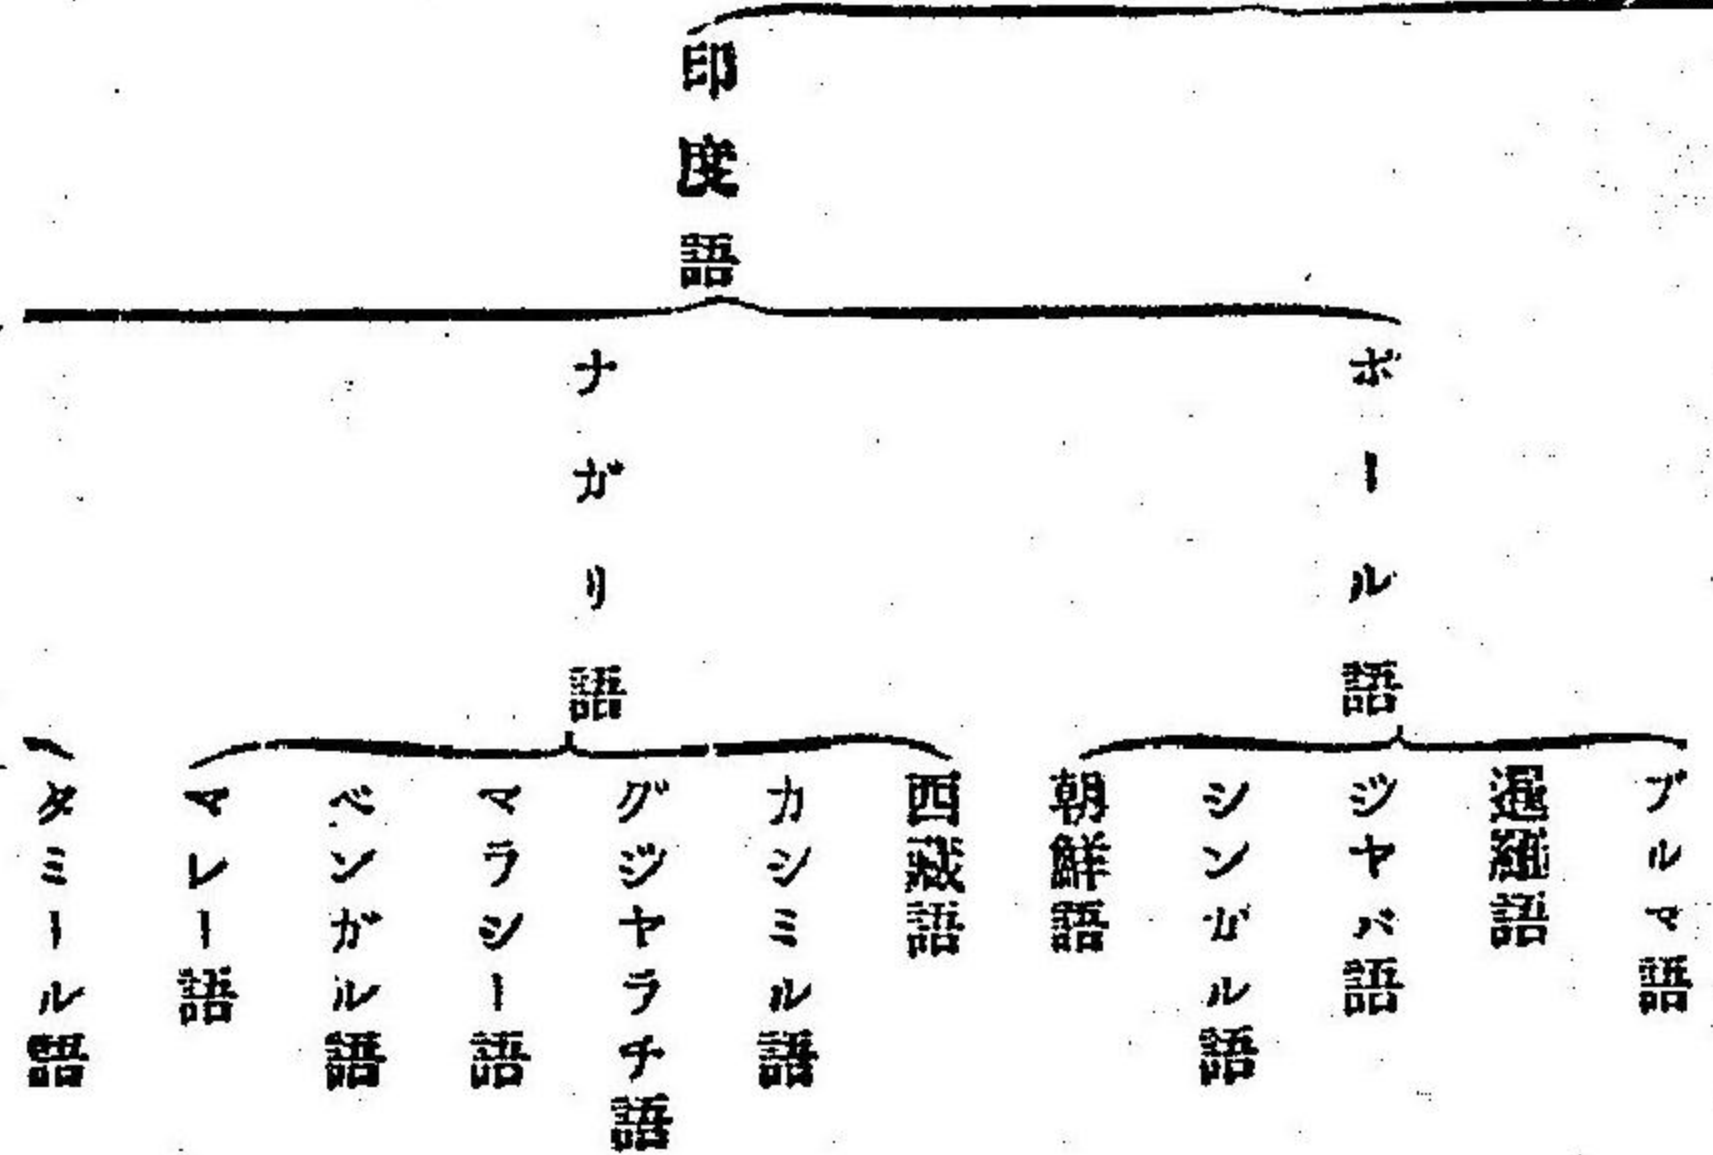 印度語
ボール語
ブルマ語
暹羅語
ジヤバ語
シンガル語
朝鮮語
ナガリ語
西蔵語
カシミル語
グジヤラチ語
マラシー語
ベンガル語
マレー語
タミール語